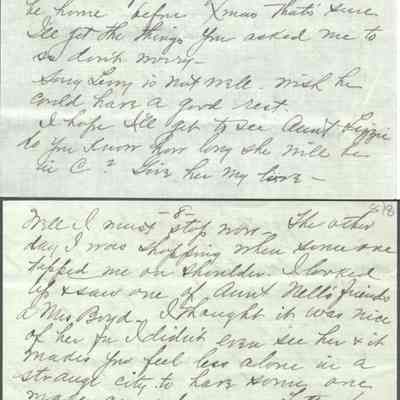 be home before Xmas that's sure
I'll get the things you asked me to
so don't worry –
Sorry Leroy is not well. wish he
could have a good rest.
I hope I'll get to see Aunt Lizzie
do you know how long she will be
in C? Give her my love –
– 8 –
Well I must stop now – The other
day I was shopping when some one
tapped me on shoulder. I looked
up & saw one of Aunt Nell's friends
a Mrs Boyd – I thought it was nice
of her for I didn't even see her & it
makes you feel less alone in a
strange city to have some one